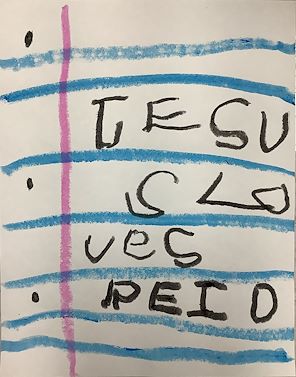 JESU
S LO
ves
REID